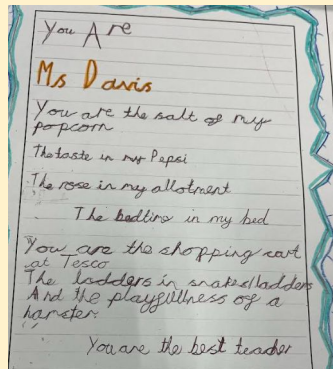 You Are
Ms Davis
You are the salt of my
popcorn
The taste in my Pepsi
The rose in my allotment
The bedtime in my bed
You are the shopping cart
at Tesco
The ladders in snakes/ladders
And the playfullness of a
hamster.
You are the best teacher